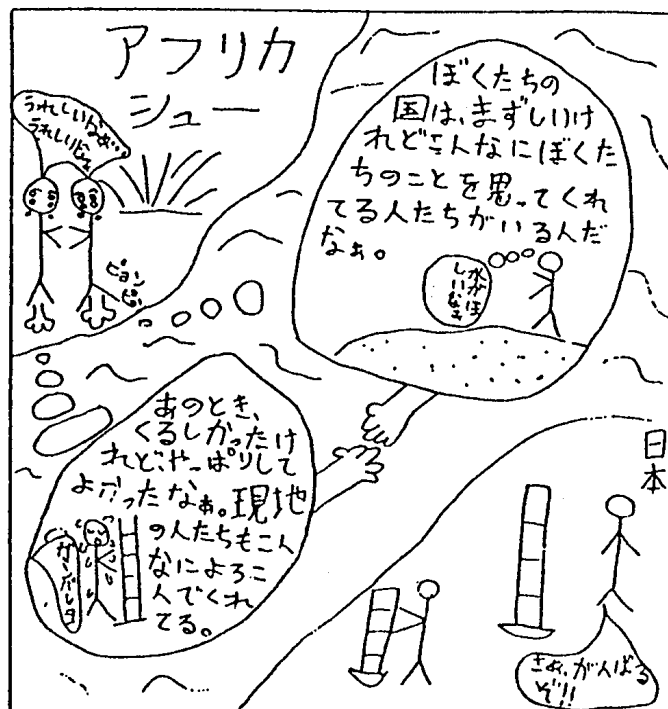 アフリカ
シュー
うれしいなぁ…
うれしいなぁ
ピョン
ピョン
ぼくたちの
国は、まずしいけ
れどこんなにぼくた
ちのことを思ってくれ
てる人たちがいる人だ
なぁ。
水がほ
しいなぁ
あのとき、
くるしかったけ
れど、やっぱりして
よかったなぁ。現地
の人たちもこん
なによろこ
んでくれ
てる。
日本
さぁ、がんばる
ぞ!!